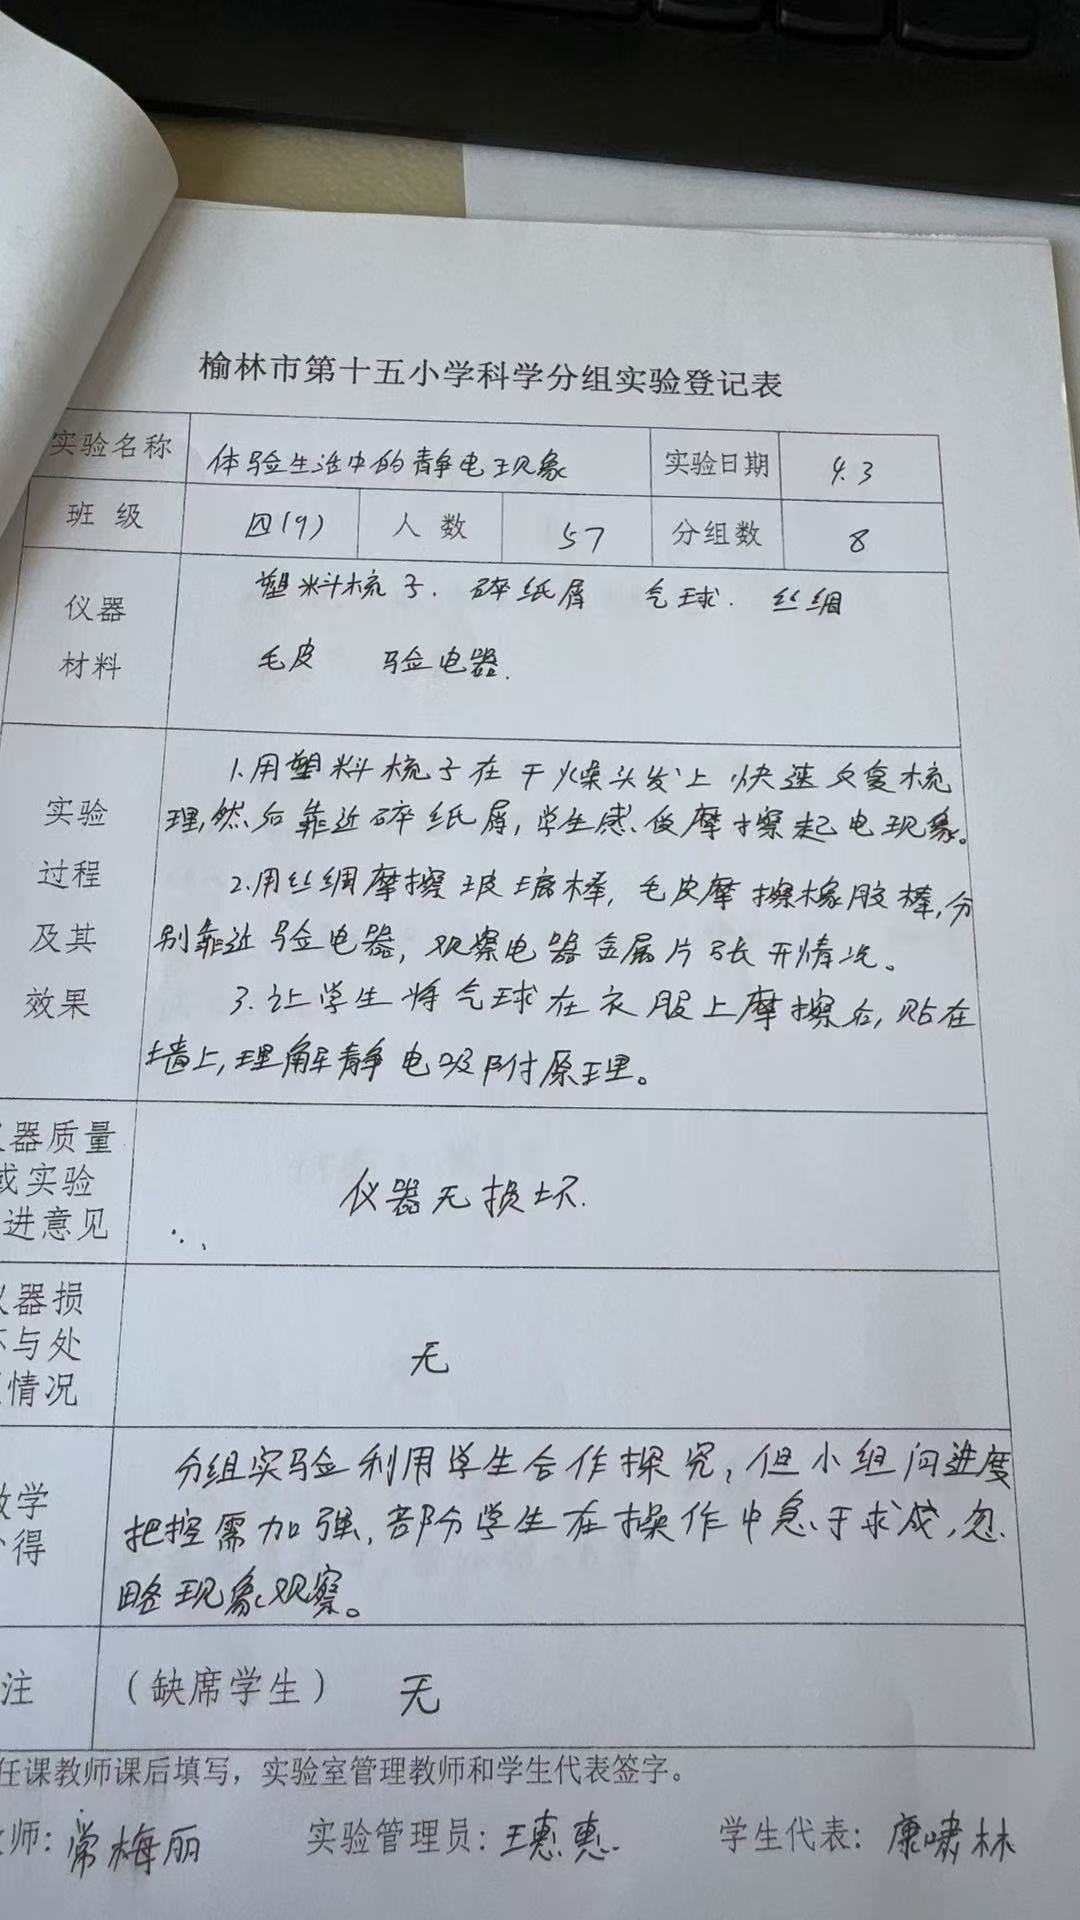 榆林市第十五小学科学分组实验登记表
实验名称 体验生活中的静电现象 实验日期 4.3
班 级 四(9) 人 数 57 分组数 8
仪器 塑料梳子. 碎纸屑 气球. 丝绸
材料 毛皮 验电器.
1.用塑料梳子在干燥头发上快速反复梳
实验
理,然后靠近碎纸屑,学生感受摩擦起电现象。
过程
2.用丝绸摩擦玻璃棒,毛皮摩擦橡胶棒,分
及其
别靠近验电器,观察电器金属片张开情况。
效果
3.让学生将气球在衣服上摩擦后,贴在
墙上,理解静电吸附原理。
器质量
或实验 仪器无损坏.
进意见
器损
与处 无
情况
分组实验利用学生合作探究,但小组间进度
学
把控需加强,部分学生在操作中急于求成,忽
得
略现象观察。
注 (缺席学生) 无
任课教师课后填写,实验室管理教师和学生代表签字。
师: 常梅丽 实验管理员: 王惠惠. 学生代表: 康啸林